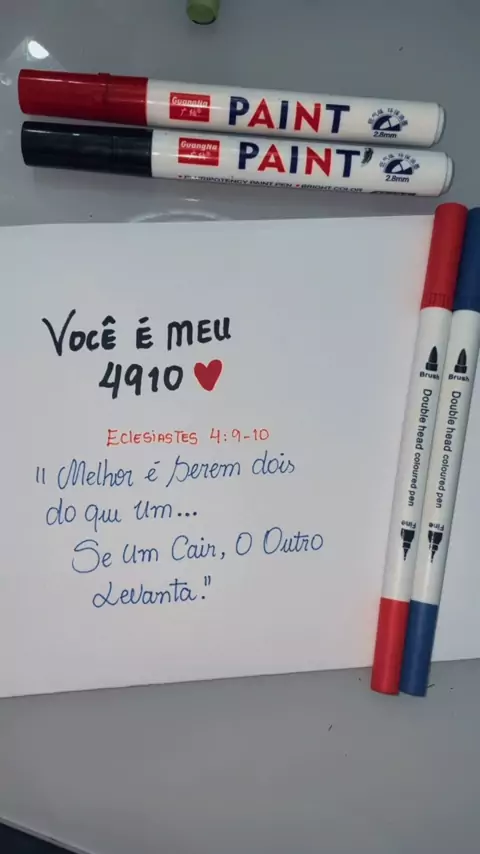 GuangNa
广纳
PAINT
2.8mm
GuangNa
广纳
PAINT
2.8mm
PAINT PEN • BRIGHT COLOR
VOCÊ É MEU
4910
ECLESIASTES 4:9-10
"Melhor é serem dois
do que um...
Se um Cair, o Outro
Levanta."
Brush
Double head coloured pen
Fine
Brush
Double head coloured pen
Fine